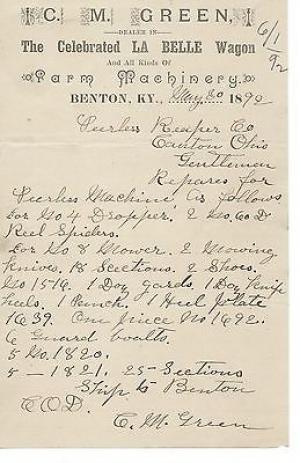 C. M. GREEN,
6/1
92
DEALER IN
The Celebrated LA BELLE Wagon
And All Kinds Of
Farm Machinery.
BENTON, KY., May 30 1892
Peerless Reaper Co
Canton Ohio
Gentlemen
Repares for
Peerless Machine as follows
for No 4 Dropper. 2 No 60 D
Reel Spiders.
for No 8 Mower. 2 Mowing
knives. 18 Sections. 2 Shoes.
No 1576. 1 Dog gards. 1 Dog knife
heels. 1 Punch. 1 Heel plate
1639. One piece No 1692.
6 Guard boalts.
5 No. 1820.
5 — 1821. 25 Sections
Ship to Benton
C.O.D.
C. M. Green